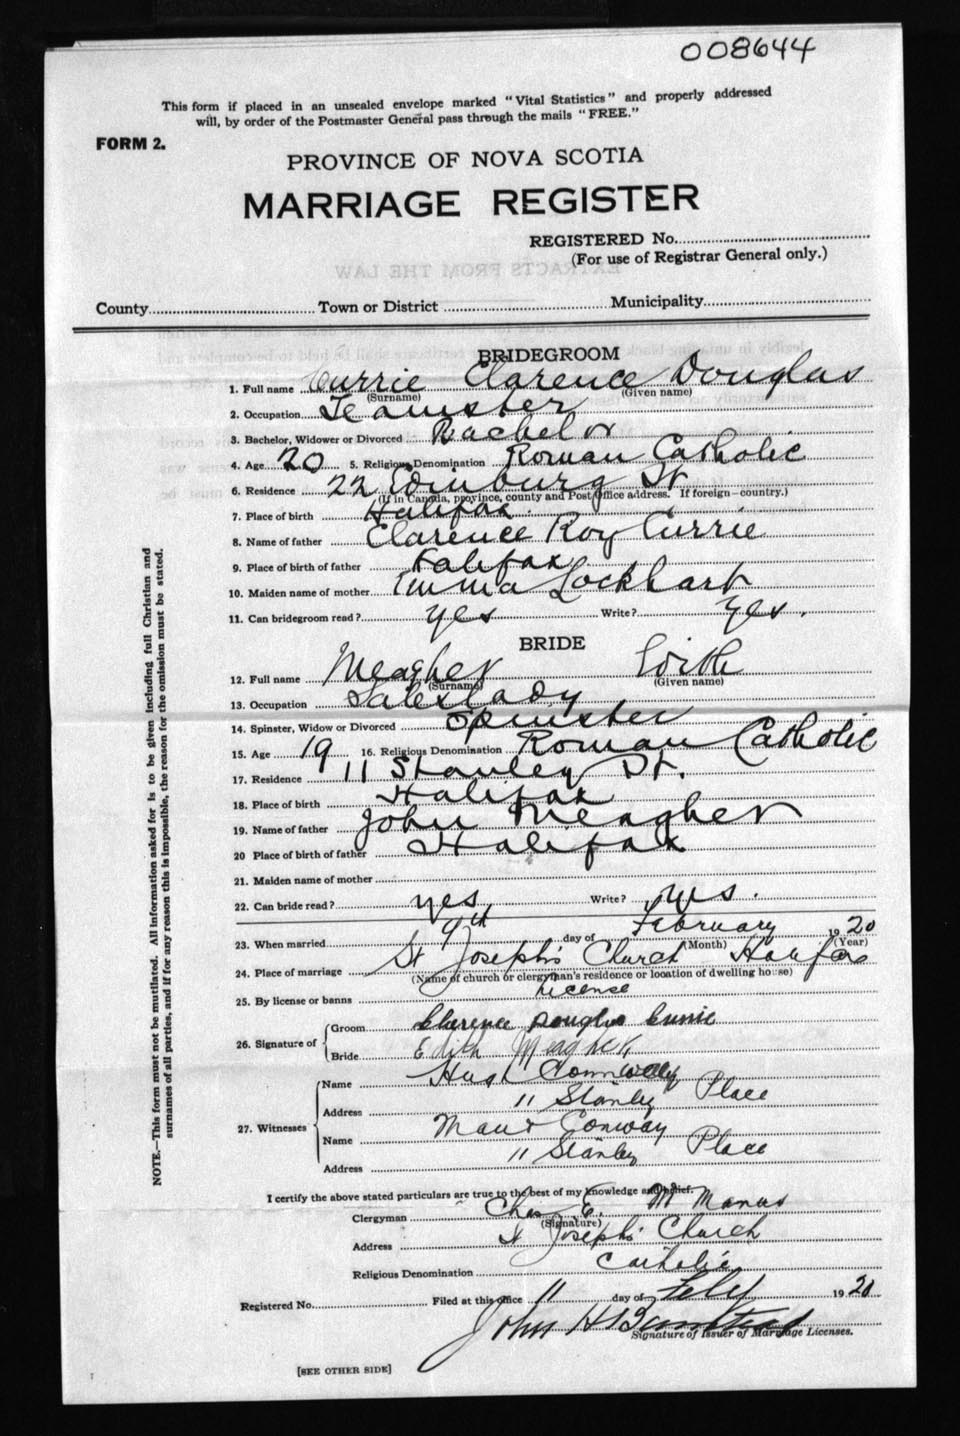 008644
This form if placed in an unsealed envelope marked "Vital Statistics" and properly addressed
will, by order of the Postmaster General pass through the mails "FREE."
FORM 2.
PROVINCE OF NOVA SCOTIA
MARRIAGE REGISTER
REGISTERED No.
(For use of Registrar General only.)
EXTRACTS FROM THE LAW
County Town or District Municipality
BRIDEGROOM
1. Full name Currie Clarence Douglas
(Surname) (Given name)
2. Occupation Teamster
3. Bachelor, Widower or Divorced Bachelor
4. Age 20 5. Religious Denomination Roman Catholic
6. Residence 22 Edinburg St
(If in Canada, province, county and Post Office address. If foreign—country.)
7. Place of birth Halifax.
8. Name of father Clarence Roy Currie
9. Place of birth of father Halifax
10. Maiden name of mother Emma Lockhart
11. Can bridegroom read? yes Write? yes.
BRIDE
12. Full name Meagher Edith
(Surname) (Given name)
13. Occupation Saleslady
14. Spinster, Widow or Divorced Spinster
15. Age 19 16. Religious Denomination Roman Catholic
17. Residence 11 Stanley St.
18. Place of birth Halifax
19. Name of father John Meagher
20 Place of birth of father Halifax
21. Maiden name of mother
22. Can bride read? yes Write? yes.
23. When married 9th day of February 1920
(Month) (Year)
24. Place of marriage St Joseph's Church Halifax
(Name of church or clergyman's residence or location of dwelling house)
25. By license or banns License
26. Signature of Groom Clarence Douglas Currie
Bride Edith Meagher
27. Witnesses Name Hugh
Address 11 Stanley Place
Name Conway
Address 11 Stanley Place
I certify the above stated particulars are true to the best of my knowledge and belief.
Clergyman Chas E. McManus
(Signature)
Address St Joseph's Church
Religious Denomination Catholic
Registered No. Filed at this office 11 day of Feby 1920
John H
Signature of Issuer of Marriage Licenses.
[SEE OTHER SIDE]
NOTE.—This form must not be mutilated. All information asked for is to be given including full Christian and
surnames of all parties, and if for any reason this is impossible, the reason for the omission must be stated.